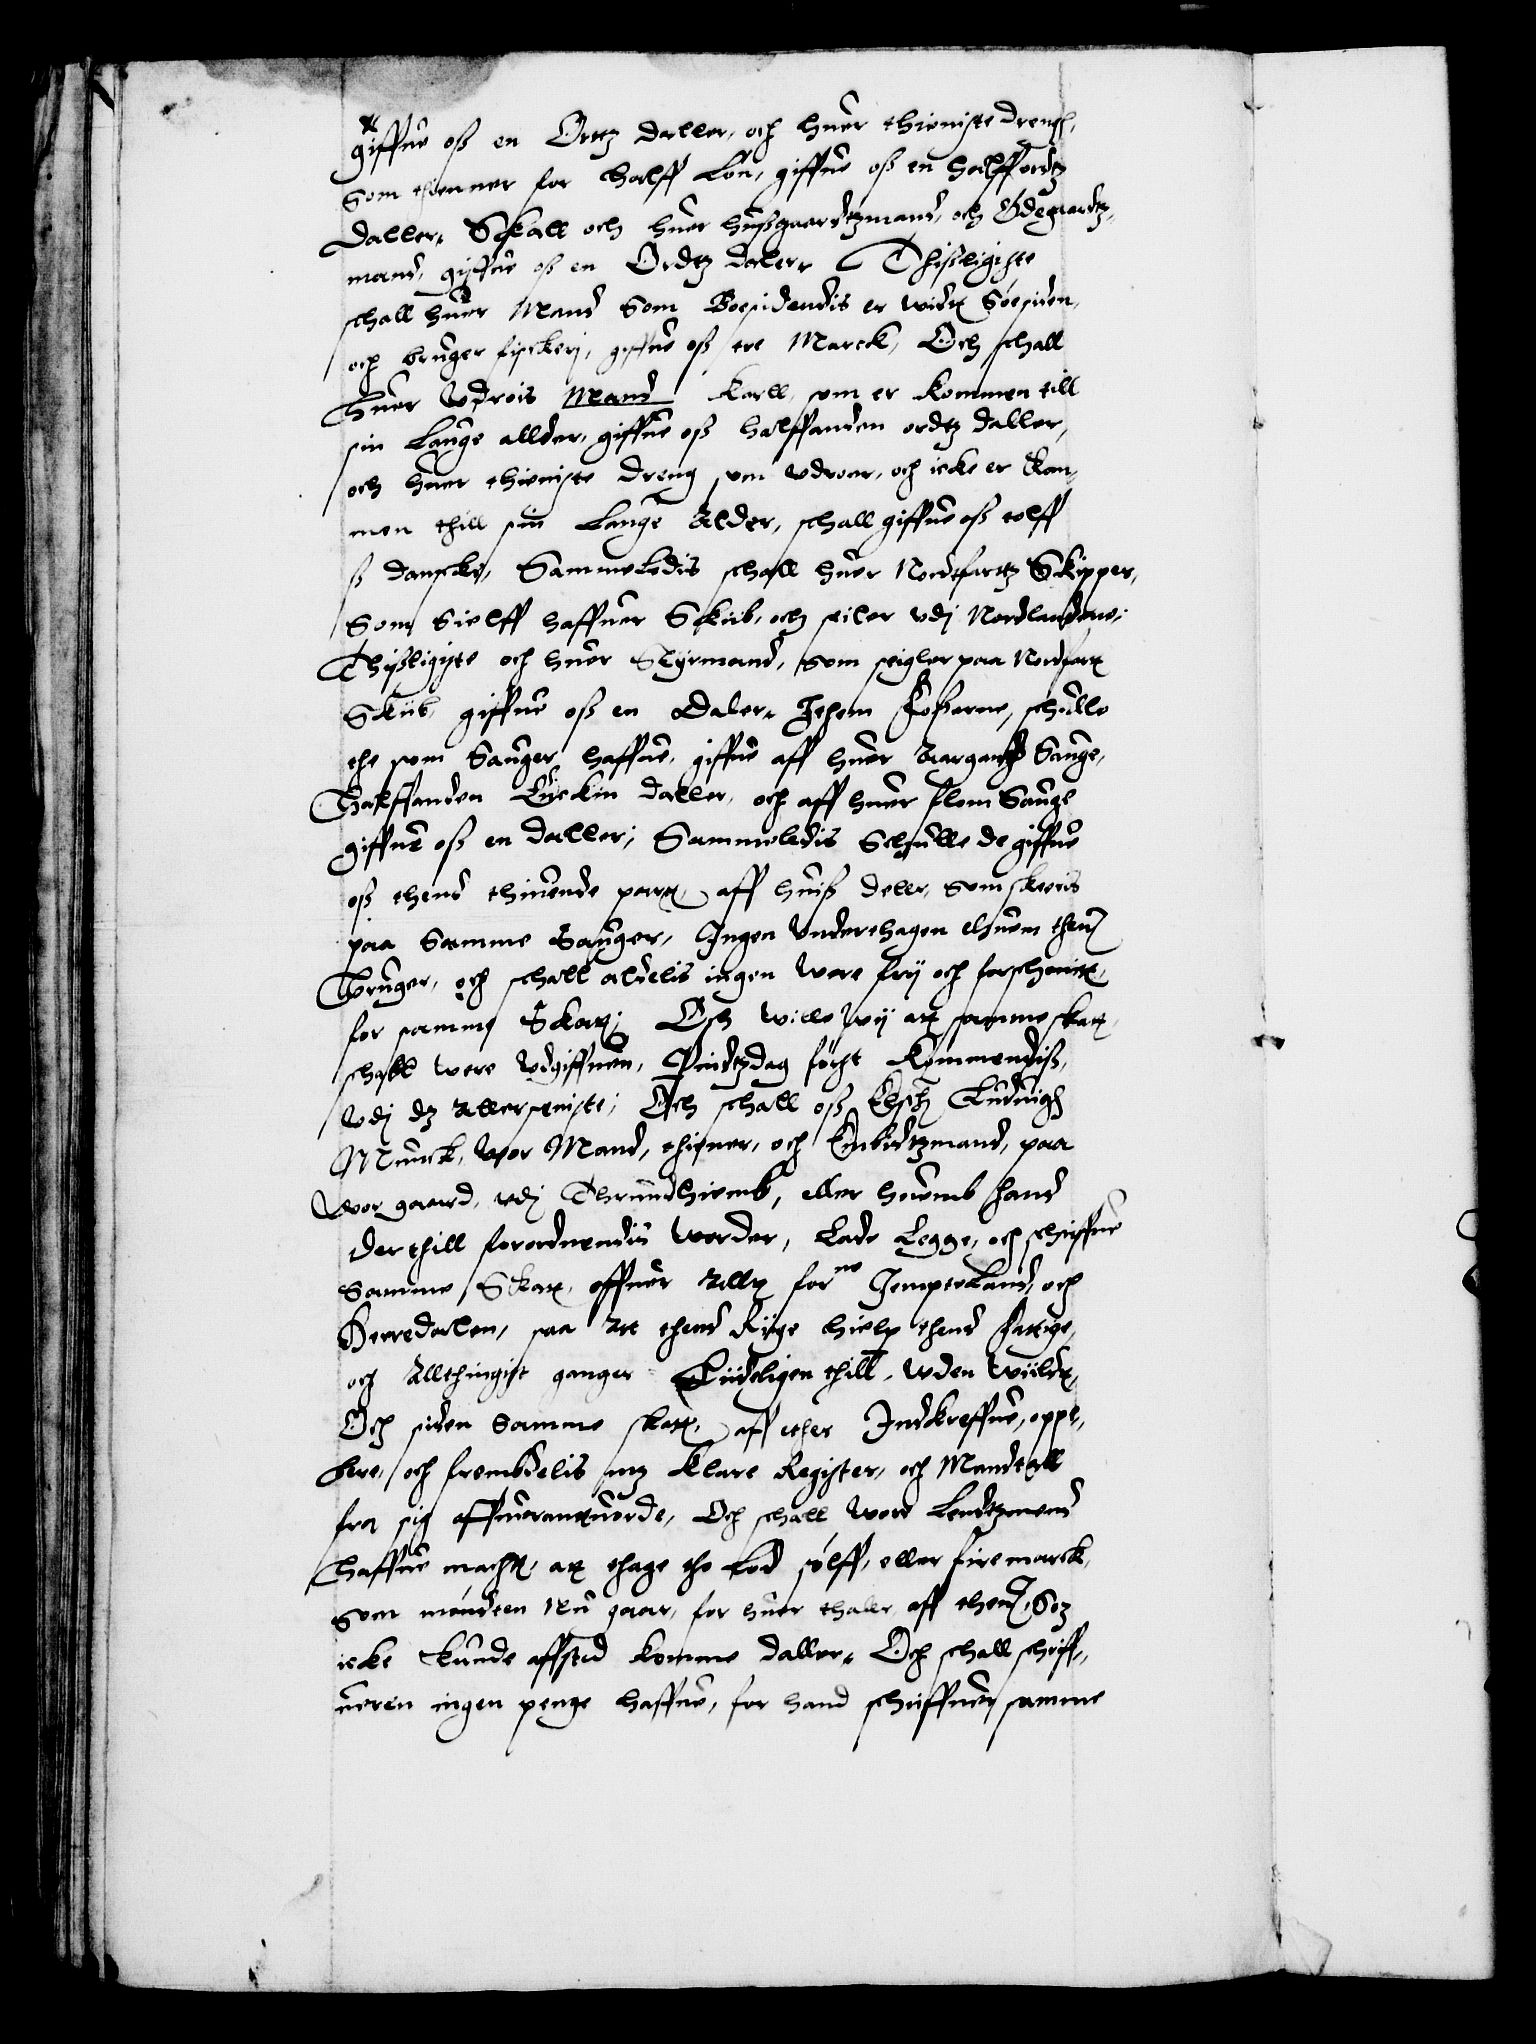 giffue oß en Ortz daller, och huer thieniste dreng,
Som thienner for halff Løn, giffue oß en halff ordtz
daller, Skall och huer hußgaardtzmand, och Ødegaardtz
mand, giffue oß en Ordtz daler, Thißligiste
schall huer Mand Som Boesidendis er widt Søesiden,
och bruger fisckerj, giffue oß tre Marck, Och schall
huer Vdrois Mand Karll, som er Kommen till
sin Lauge allder, giffue oß halffanden ordtz daller,
och huer thieniste dreng som vdroer, och icke er Kom,
men thill sin Lauge Alder, schall giffue oß tolff
ß danscke, Sammeledis schall huer Nordfartz Skipper,
Som Sielff haffuer Skiib, och seiler vdj Nordlandene,
Thißligiste och huer Styrmand, som seigler paa Nordfar
Skiib, giffue oß en Daler, Ithem Foßerne, schulle
the som Sauger haffue, giffue aff huer Aargangs Sauge,
Halffanden Lüebskin daller, och aff huer flom Sauge
giffue oß en daller, Sammeledis Schulle de giffue
oß thend thiuende part, aff huiß deller, som skeeris
paa Samme Sauger, Ingen Vnderthagen ehuem them
bruger, och schall aldelis ingen were frij och forschonit,
for samme Skatt, Och wille wij att samme skatt,
schall were Vdgiffuen, Pindtzdag først Kommendiß,
Vdj dz allerseniste, Och schall oß Elsch Luduig
Munck, wor Mand, thiener, och Embidtzmand, paa
wor gaard, vdj Thrundhiemb, eller huemb hand
der thill forordnendis worder, Lade Legge, och schriffue
Samme Skatt, offuer Allt for<sup>ne</sup> Jempteland, och
Herredalen, saa Att thend Riige hielp thend fattige,
och Allthingist ganger Liideligen thill, Vden wiildt,
Och siden Samme skatt, aff ther Indkreffue, oppe,
bere, och frembdelis mz Klare Register, och Mandtall
fra sig offuerantuorde, Och schall wore Lendtzmend
haffue macht, att thage tho Lod sølff, eller fire marck,
Som mønten nu gaar, for huer thaler, aff them, Som
icke kunde affsted komme daller, Och schall schriff,
ueren ingen penge haffue, for hand schriffuer samme